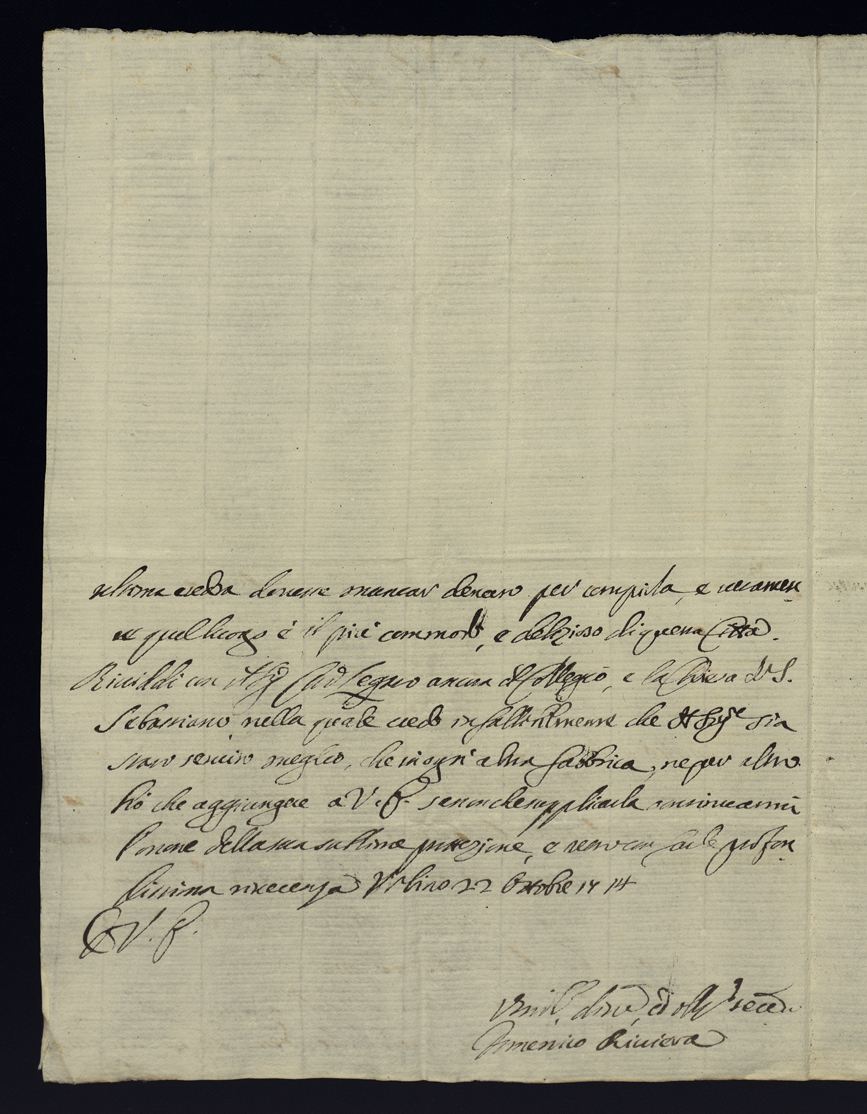 ultima creda dovere mancar denaro per compirla, e veramen
te quel luogo è il più commodo, e delizioso di questa Città.
Rividdi con il Sig. Cardle Legato ancora il Collegio, e la Chiesa di S.
Sebastiano nella quale credo infallibilmente che il Sigre sia
stato servito meglio, che in ogni altra fabbrica, ne per altro
hò che aggiungere a V. E. se non che supplicarla continuarmi
l'onore della sua protezione, e resto con farle profon
dissima riverenza Urbino 22 Ottobre 1714
Di V. E.
Umil. divo, ed obl serre
Domenico Riviera